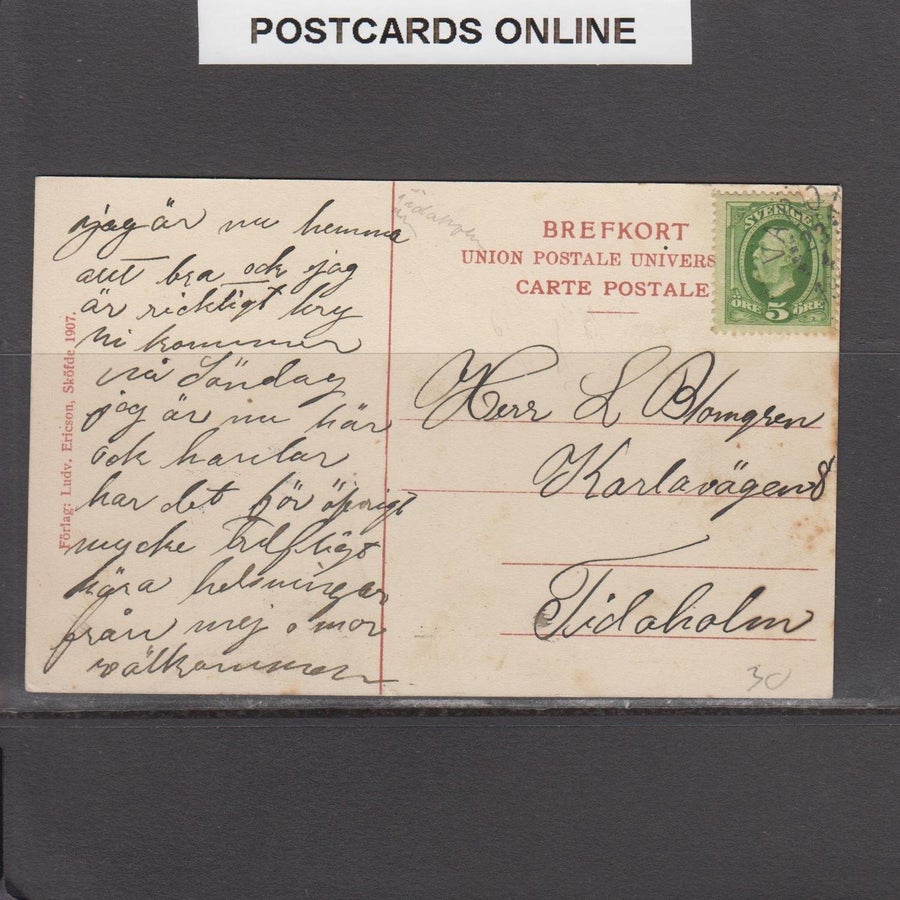 POSTCARDS ONLINE
jag är nu hemma
allt bra ock jag
är ricktigt kry
ni kommer
nu Söndag
jag är nu här
ock
har det för öprigt
mycke trefligt
kära helsningar
från mej o mor
välkommen
Förlag: Ludv. Ericson, Sköfde 1907.
Tidaholm
BREFKORT
UNION POSTALE UNIVERS
CARTE POSTALE
SVERIGE
ÖRE 5 ÖRE
Herr L Blomgren
Karlavägen 8
Tidaholm
30